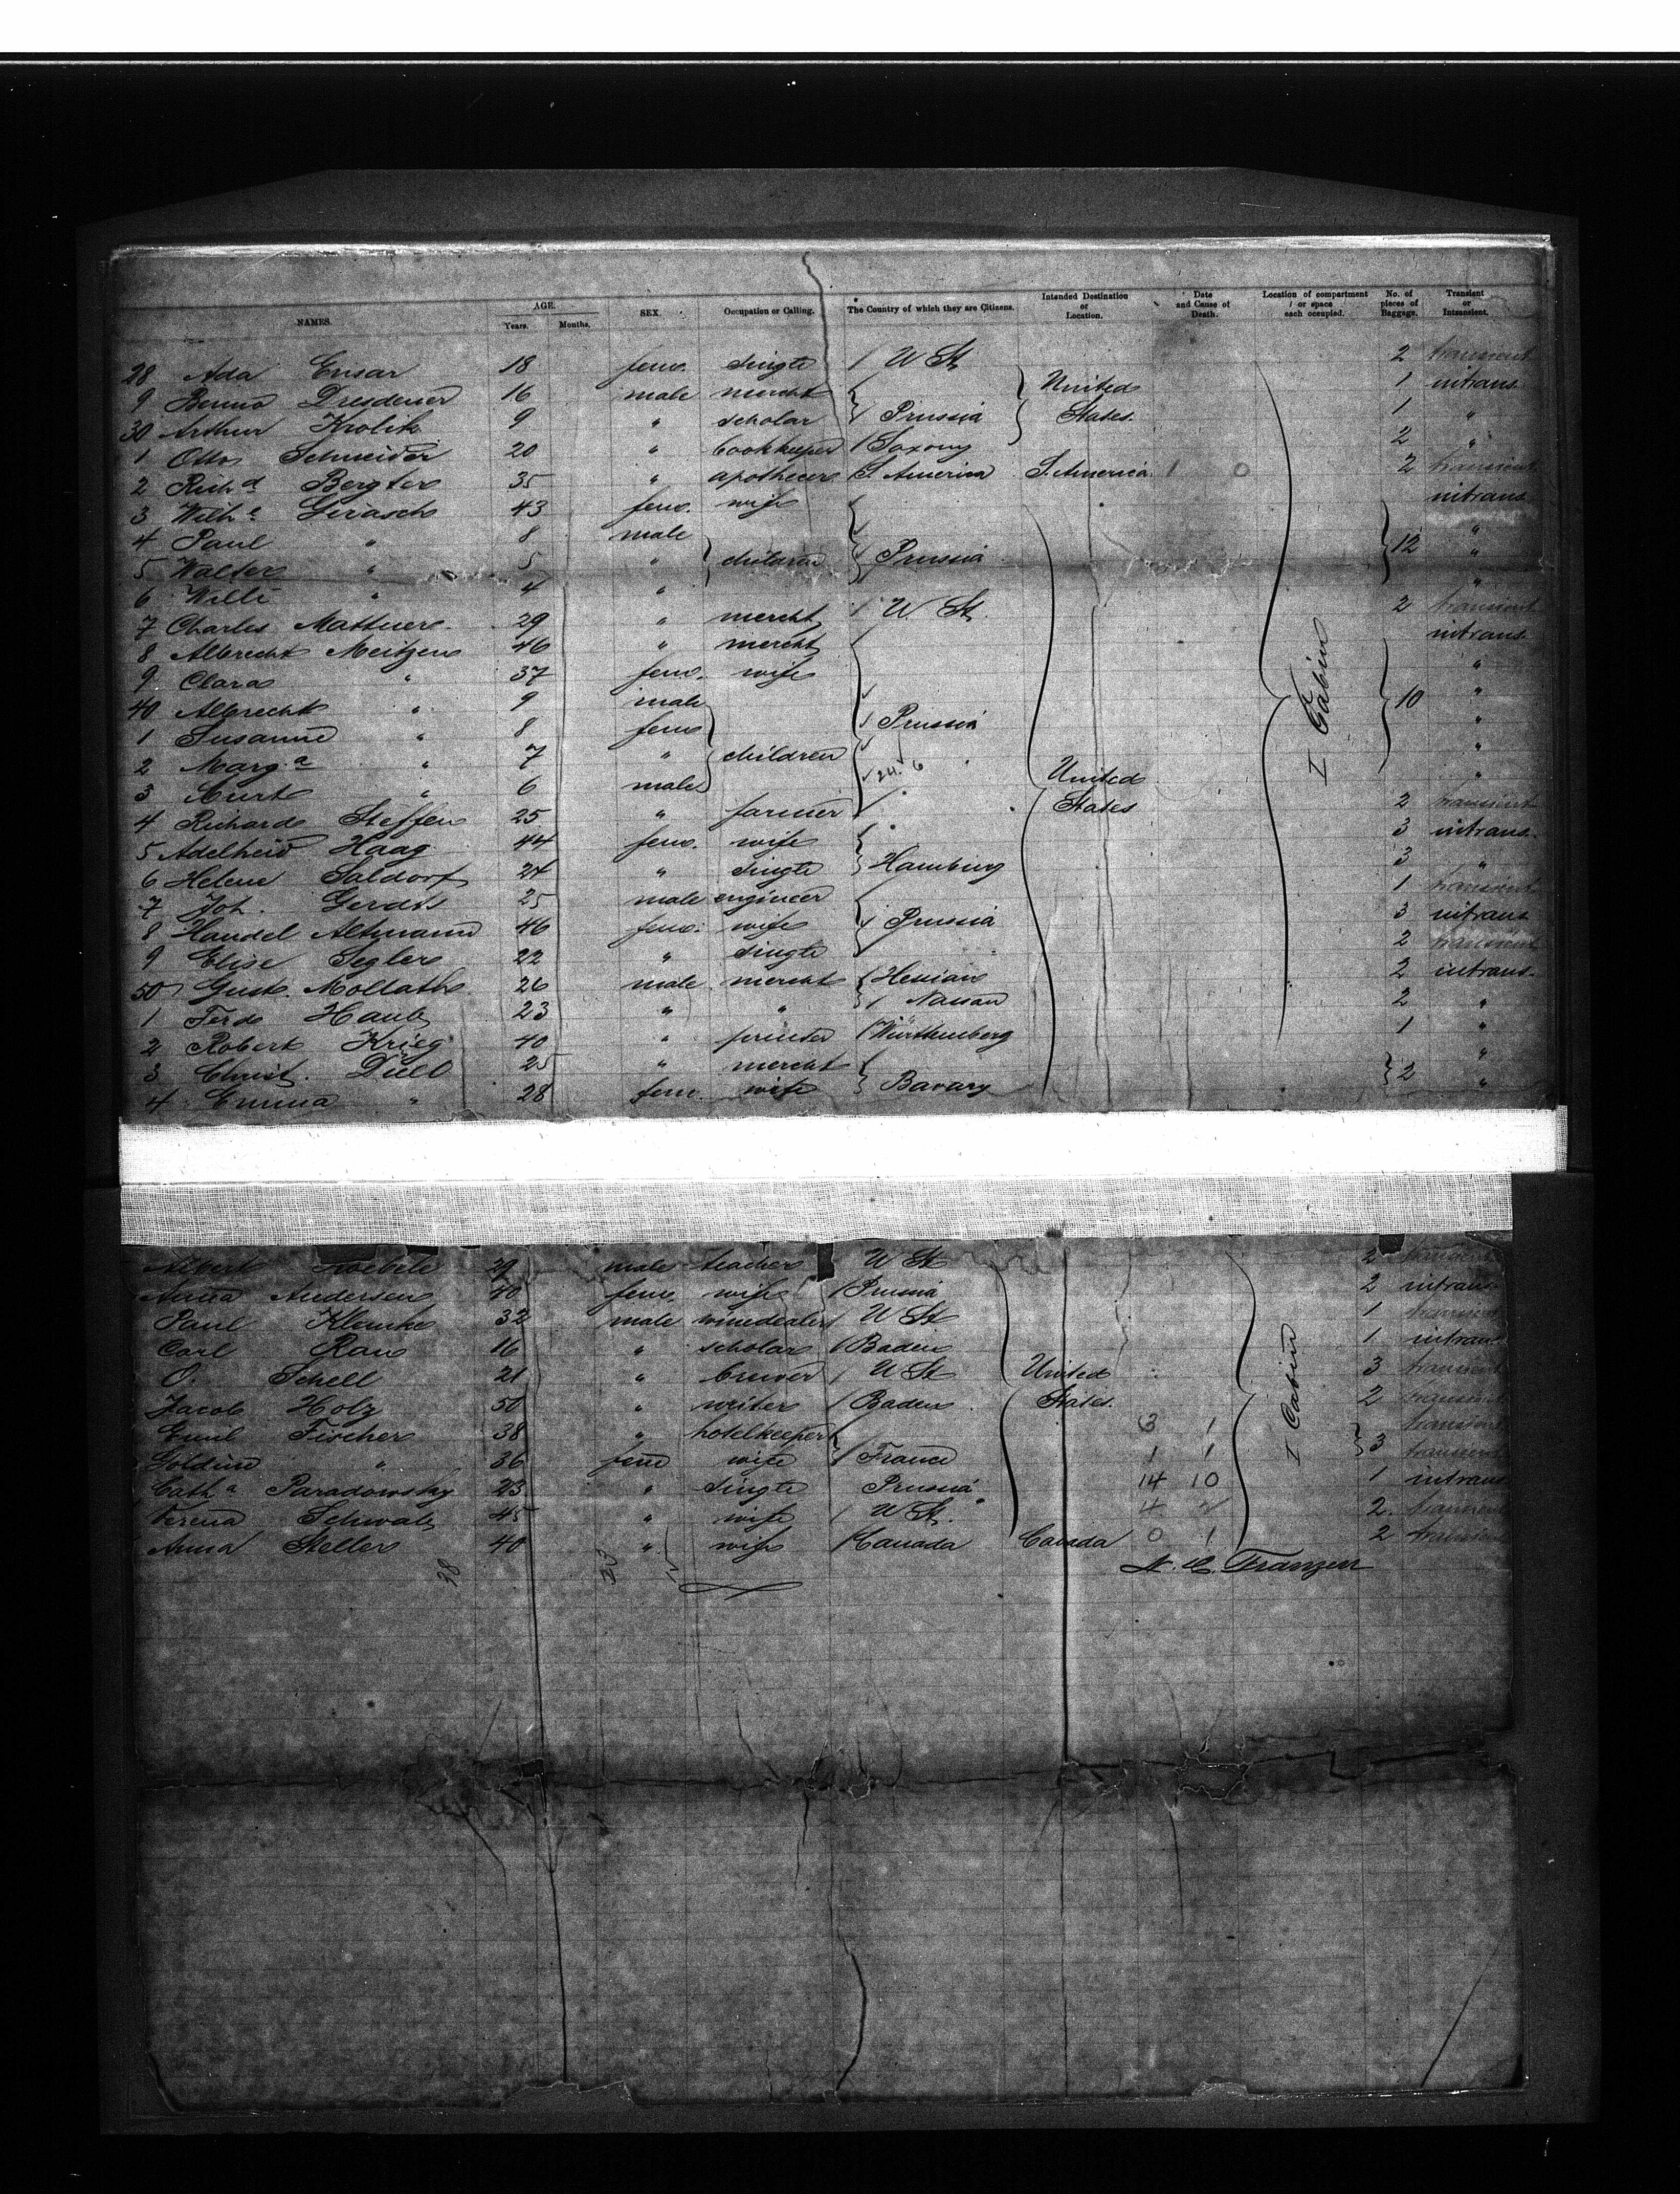 NAMES. AGE. Years. Months. SEX. Occupation or Calling. The Country of which they are Citizens. Intended Destination or Location. Date and Cause of Death. Location of compartment or space each occupied. No. of pieces of Baggage. Transient or Intransient.
28 Ada Ensar 18 fem. single / U St 2 transient
9 Benno Dresdener 16 male mercht United 1 intrans.
30 Arthur Krolik 9 " scholar Prussia States. 1 "
1 Otto Schneider 20 " bookkeeper / Saxony 2 "
2 Richd Bergter 35 " apothecer S. America S. America 1 0 2 transient
3 Wilhe Gerasch 43 fem. wife intrans
4 Paul " 8 male 12 "
5 Walter " 5 " children Prussia "
6 Willi " 4 " "
7 Charles Mattuer 29 " mercht / U St. 2 transient
8 Albrecht Meitzen 46 " mercht intrans.
9 Clara " 37 fem. wife "
40 Albrecht " 9 male 10 "
1 Susanne " 8 fem Prussia "
2 Marg.a " 7 " children "
3 Curt " 6 male United "
4 Richard Steffen 25 " farmer States 2 transient
5 Adelheid Haag 44 fem. wife 3 intrans.
6 Helene Saldorf 24 " single Hamburg 3 "
7 Joh. Gerdts 25 male engineer 1 transient
8 Handel Altmann 46 fem. wife Prussia 3 intrans
9 Elise Segler 22 " single 2 transient
50 Gust. Mollath 26 male mercht Hessian 2 intrans.
1 Ferd Haub 23 " " / Nassau 2 "
2 Robert Krieg 40 " printer / Württemberg 1 "
3 Christ. Düll 25 " mercht 2 "
4 Emma " 28 fem. wife Bavary "
I Cabin
Albert 29 male teacher U St 2 transient
Anna Andersen 40 fem. wife / Prussia 2 intrans
Paul Klemke 32 male winedealer / U St 1 transient
Carl Rau 16 " scholar / Baden 1 intrans
O. Schell 21 " brewer / U St United 3 transient
Jacob Holz 50 " writer / Baden States. 2 transient
Emil Fischer 38 " hotelkeeper 3 1 transient
Goldine " 36 fem wife / France 1 1 3 transient
Catha Paradowsky 23 " single Prussia 14 10 1 intrans
Verena Schwab 45 " wife / U St. 4 2. transient
Anna Steller 40 " wife / Canada Canada 0 1 2 transient
I Cabin
28
N. C. Franzen